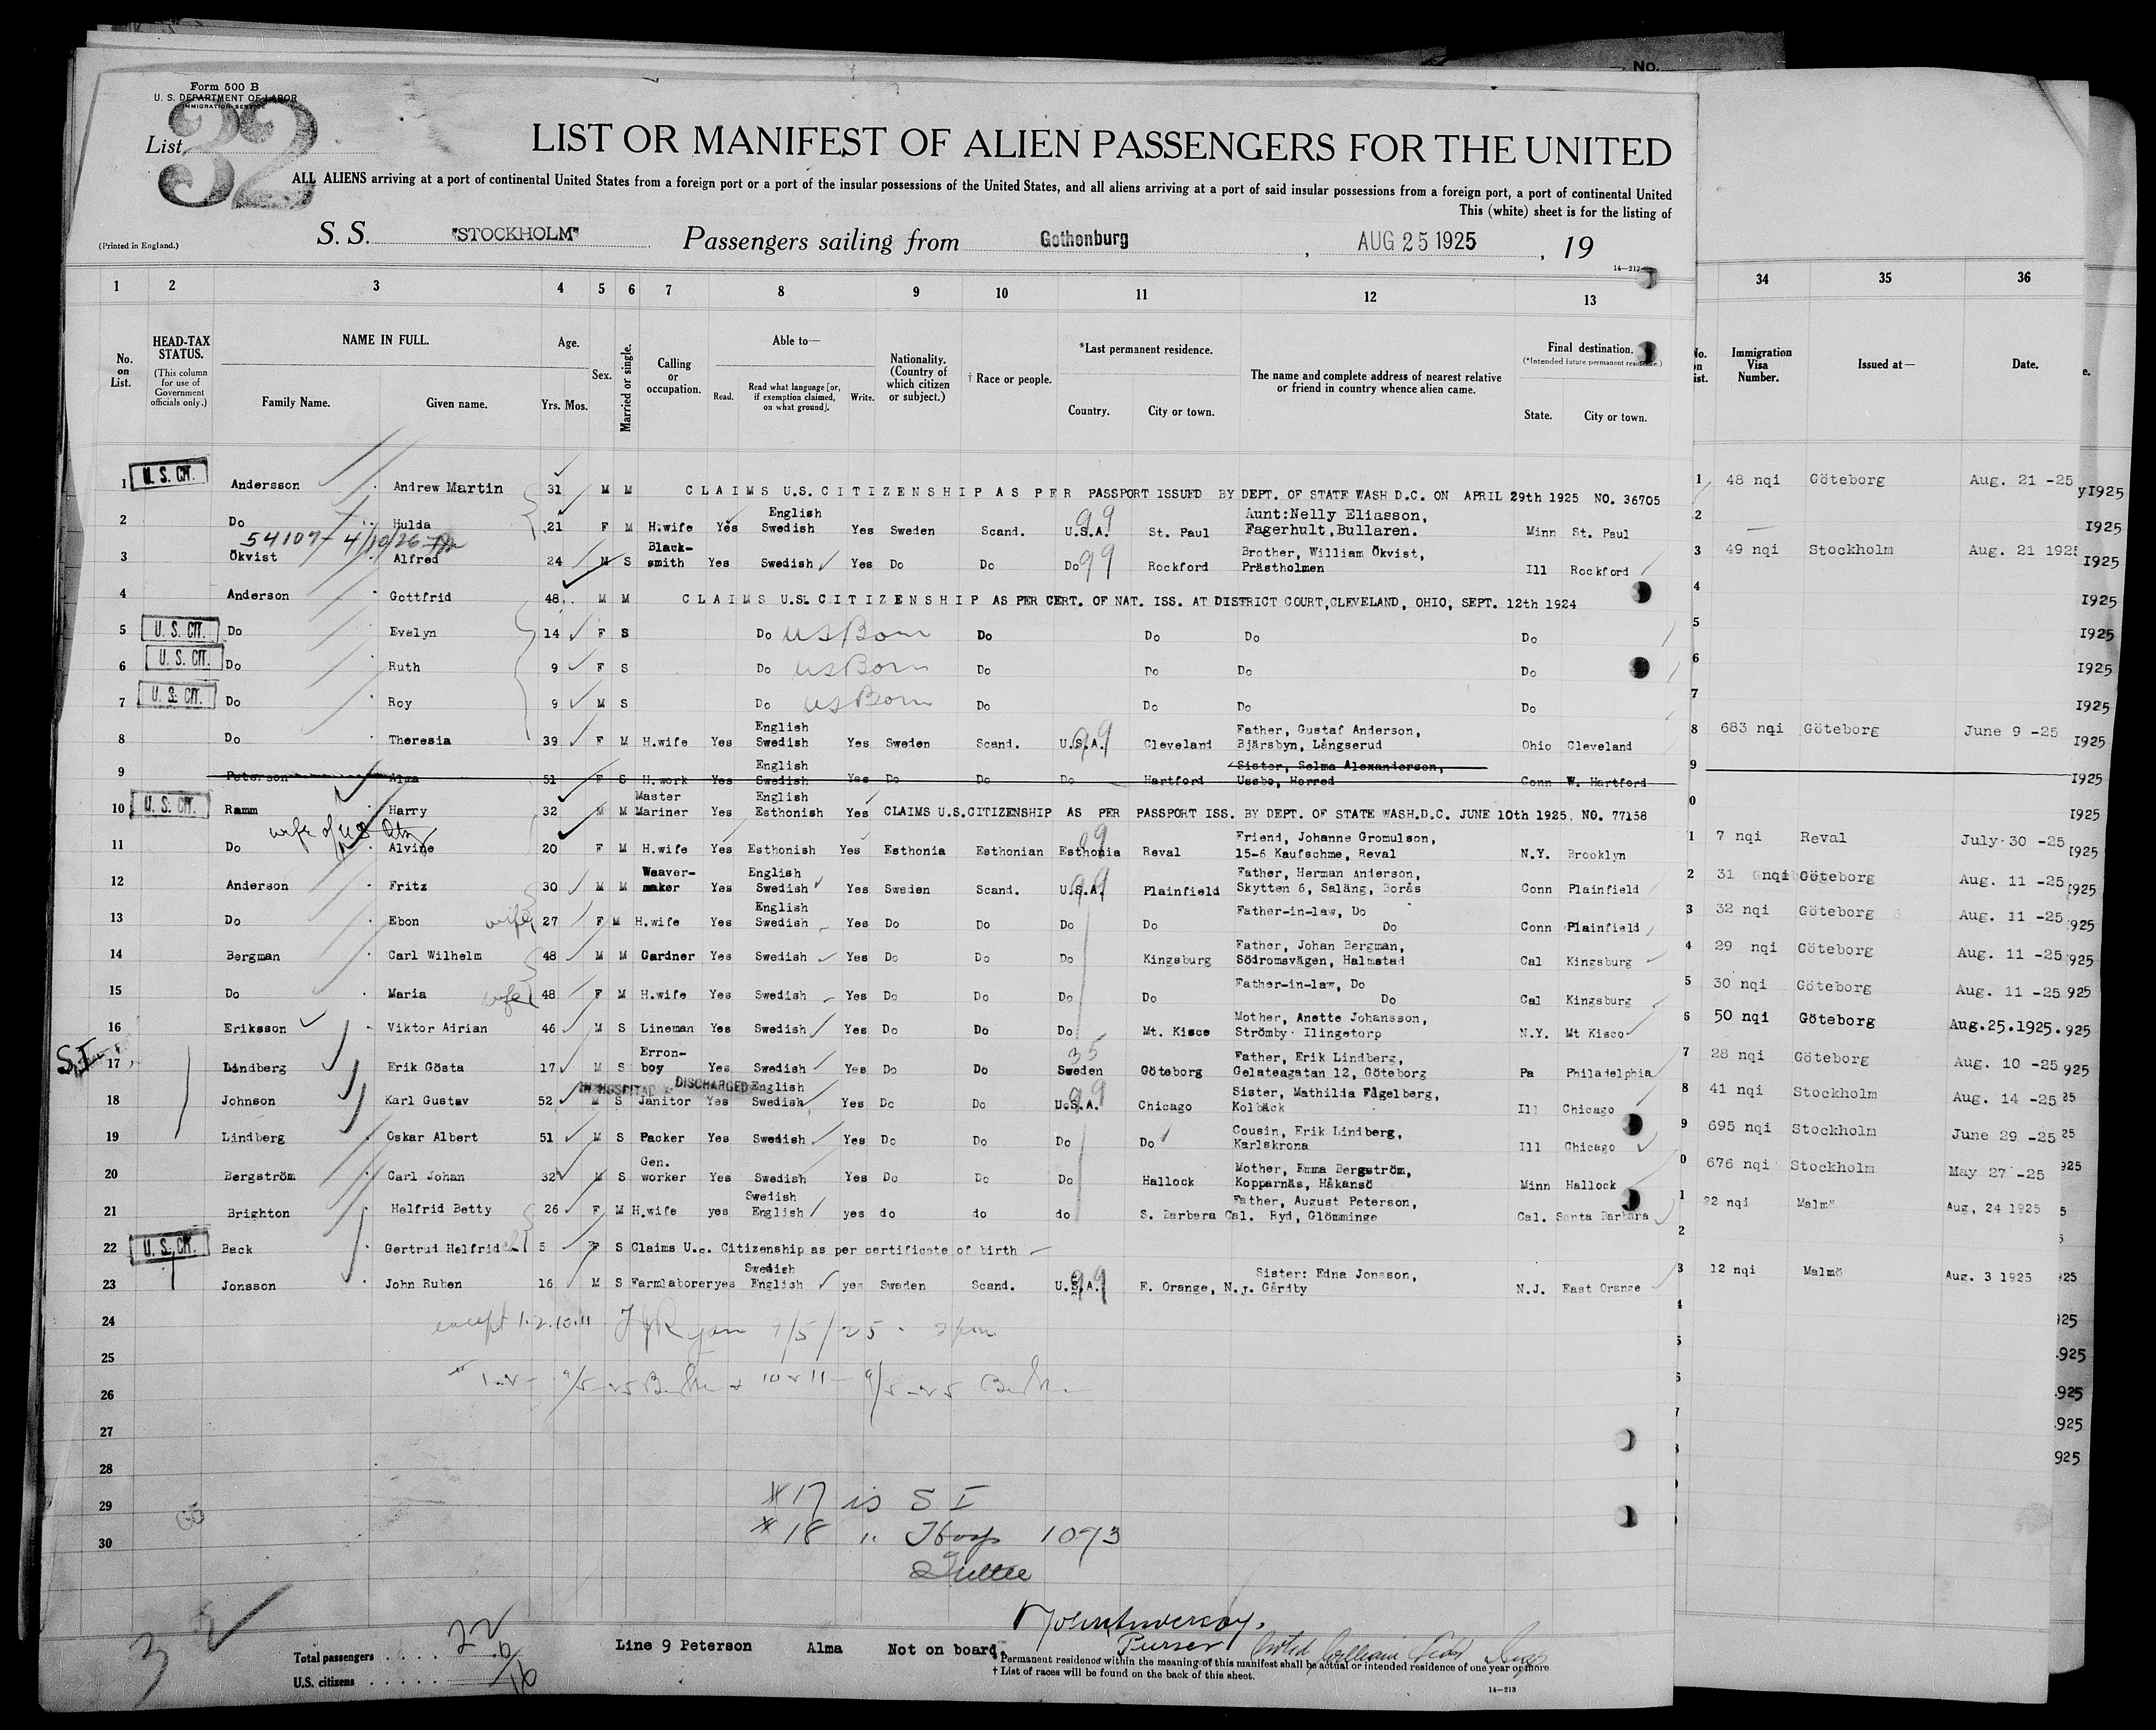 No.
Form 500 B
U. S. DEPARTMENT OF LABOR
IMMIGRATION SERVICE
List 32
LIST OR MANIFEST OF ALIEN PASSENGERS FOR THE UNITED
ALL ALIENS arriving at a port of continental United States from a foreign port or a port of the insular possessions of the United States, and all aliens arriving at a port of said insular possessions from a foreign port, a port of continental United
This (white) sheet is for the listing of
(Printed in England.)
S. S. "STOCKHOLM" Passengers sailing from Gothenburg, AUG 25 1925, 19
1 2 3 4 5 6 7 8 9 10 11 12 13 34 35 36
No. on List.
HEAD-TAX STATUS.
(This column for use of Government officials only.)
NAME IN FULL.
Family Name. Given name.
Age.
Yrs. Mos.
Sex.
Married or single.
Calling or occupation.
Able to—
Read. Read what language [or, if exemption claimed, on what ground]. Write.
Nationality. (Country of which citizen or subject.)
† Race or people.
*Last permanent residence.
Country. City or town.
The name and complete address of nearest relative or friend in country whence alien came.
Final destination.
(*Intended future permanent residence.)
State. City or town.
Immigration Visa Number.
Issued at—
Date.
1 U. S. CIT. Andersson Andrew Martin 31 M M CLAIMS U.S. CITIZENSHIP AS PER PASSPORT ISSUED BY DEPT. OF STATE WASH D.C. ON APRIL 29th 1925 NO. 36705 1 48 nqi Göteborg Aug. 21 -25
2 Do Hulda 21 F M H.wife Yes English Swedish Yes Sweden Scand. U.S.A. 99 St. Paul Aunt:Nelly Eliasson, Fagerhult,Bullaren. Minn St. Paul 2
54107- 4/10/26
3 Ökvist Alfred 24 M S Black-smith Yes Swedish Yes Do Do Do 99 Rockford Brother, William Ökvist, Prästholmen Ill Rockford 3 49 nqi Stockholm Aug. 21 1925
4 Anderson Gottfrid 48 M M CLAIMS U.S. CITIZENSHIP AS PER CERT. OF NAT. ISS. AT DISTRICT COURT,CLEVELAND, OHIO, SEPT. 12th 1924 4
5 U. S. CIT. Do Evelyn 14 F S Do US Born Do Do Do Do 5
6 U. S. CIT. Do Ruth 9 F S Do US Born Do Do Do Do 6
7 U. S. CIT. Do Roy 9 M S Do US Born Do Do Do Do 7
8 Do Theresia 39 F M H.wife Yes English Swedish Yes Sweden Scand. U.S.A. 99 Cleveland Father, Gustaf Anderson, Bjärsbyn, Långserud Ohio Cleveland 8 683 nqi Göteborg June 9 -25
9 Peterson Alma 51 F S H.work Yes English Swedish Yes Do Do Do Hartford Sister, Selma Alexanderson, Ussbo, Horred Conn W. Hartford 9
10 U. S. CIT. Ramm Harry 32 M M Master Mariner Yes English Esthonish Yes CLAIMS U.S.CITIZENSHIP AS PER PASSPORT ISS. BY DEPT. OF STATE WASH.D.C. JUNE 10th 1925. NO. 77158 0
wife of US Ctzn
11 Do Alvine 20 F M H.wife Yes Esthonish Yes Esthonia Esthonian Esthonia 99 Reval Friend, Johanne Gromulson, 15-6 Kaufschme, Reval N.Y. Brooklyn 1 7 nqi Reval July-30 -25
12 Anderson Fritz 30 M M Weaver-maker Yes English Swedish Yes Sweden Scand. U.S.A. 99 Plainfield Father, Herman Anderson, Skytten 6, Saläng, Borås Conn Plainfield 2 31 nqi Göteborg Aug. 11 -25
13 Do Ebon wife 27 F M H.wife Yes English Swedish Yes Do Do Do Do Father-in-law, Do Do Conn Plainfield 3 32 nqi Göteborg Aug. 11 -25
14 Bergman Carl Wilhelm 48 M M Gardner Yes Swedish Yes Do Do Do Kingsburg Father, Johan Bergman, Södromsvägen, Halmstad Cal Kingsburg 4 29 nqi Göteborg Aug. 11 -25
15 Do Maria wife 48 F M H.wife Yes Swedish Yes Do Do Do Do Father-in-law, Do Do Cal Kingsburg 5 30 nqi Göteborg Aug. 11 -25
16 Eriksson Viktor Adrian 46 M S Lineman Yes Swedish Yes Do Do Do Mt. Kisco Mother, Anette Johansson, Strömby Ilingetorp N.Y. Mt Kisco 6 50 nqi Göteborg Aug.25.1925.
S.I. 17 Lindberg Erik Gösta 17 M S Erron-boy Yes Swedish Yes Do Do Sweden 35 Göteborg Father, Erik Lindberg, Gelateagatan 12, Göteborg Pa Philadelphia 7 28 nqi Göteborg Aug. 10 -25
IN HOSPITAL DISCHARGED
18 Johnson Karl Gustav 52 M S Janitor Yes English Swedish Yes Do Do U.S.A. 99 Chicago Sister, Mathilda Fågelberg, Kolbäck Ill Chicago 8 41 nqi Stockholm Aug. 14 -25
19 Lindberg Oskar Albert 51 M S Packer Yes Swedish Yes Do Do Do Do Cousin, Erik Lindberg, Karlskrona Ill Chicago 9 695 nqi Stockholm June 29 -25
20 Bergström Carl Johan 32 M S Gen. worker Yes Swedish Yes Do Do Do Hallock Mother, Emma Bergström, Kopparnäs, Håkansö Minn Hallock 0 676 nqi Stockholm May 27 -25
21 Brighton Helfrid Betty 26 F M H.wife yes Swedish English yes do do do S. Barbera Cal. Father, August Peterson, Ryd, Glömminge Cal. Santa Barbara 1 22 nqi Malmö Aug, 24 1925
22 U. S. CIT. Back Gertrud Helfrid 5 F S Claims U.S. Citizenship as per certificate of birth 2
23 Jonsson John Ruben 16 M S Farmlaborer yes Swedish English yes Sweden Scand. U.S.A. 99 E. Orange, N.J. Sister: Edna Jonsson, Gårdby N.J. East Orange 3 12 nqi Malmö Aug. 3 1925
24 except 1.2.10.11 9/5/25
25
26
27
28
29 #17 is S I
30 #18 " Hosp 1093
32
Purser
Total passengers 22
U.S. citizens
Line 9 Peterson Alma Not on board.
* Permanent residence within the meaning of this manifest shall be actual or intended residence of one year or more
† List of races will be found on the back of this sheet.
14—213